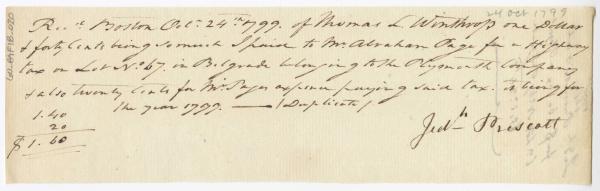 24 Oct 1799
Rec.d Boston Oct.r 24.th 1799. of Thomas L. Winthrop one Dollar
& forty Cents being so much I paid to Mr. Abraham Page for a Highway
tax on Lot No. 67. in Belgrade belonging to the Plymouth Company
& also twenty Cents for Mr. Pages expence paying said tax. it being for
the year 1799. — (Duplicate)
1.40
20
$ 1.60
Jed.h Prescott